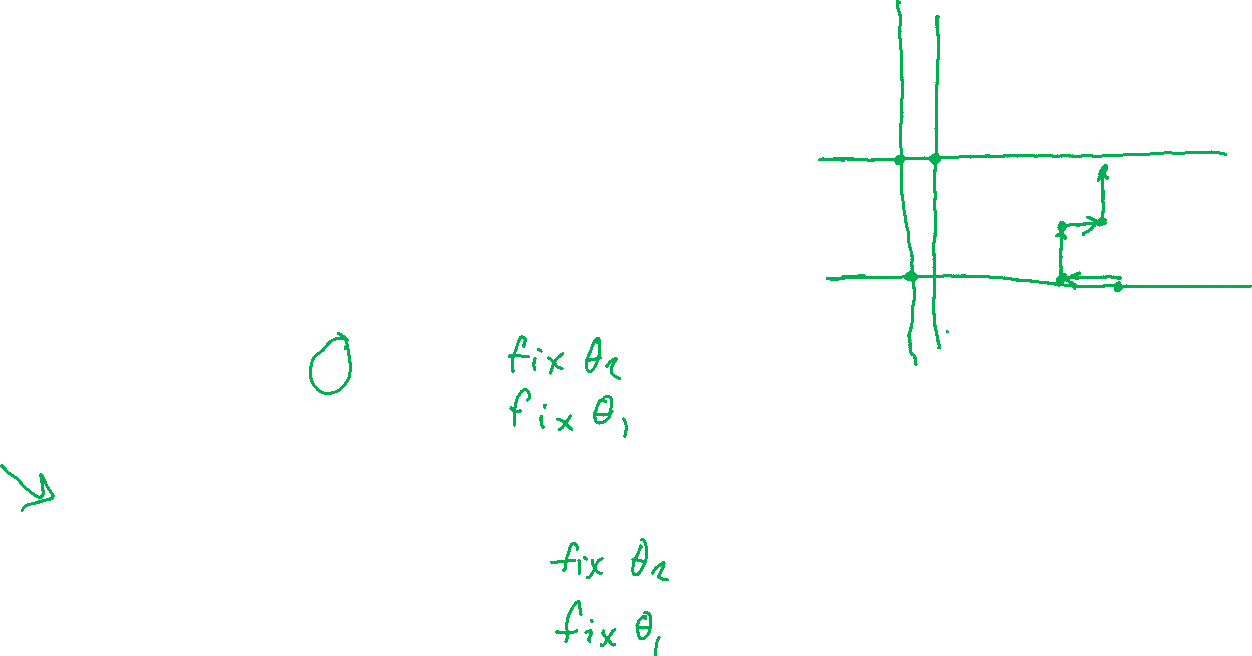 fix θ₂
fix θ₁
fix θ₂
fix θ₁